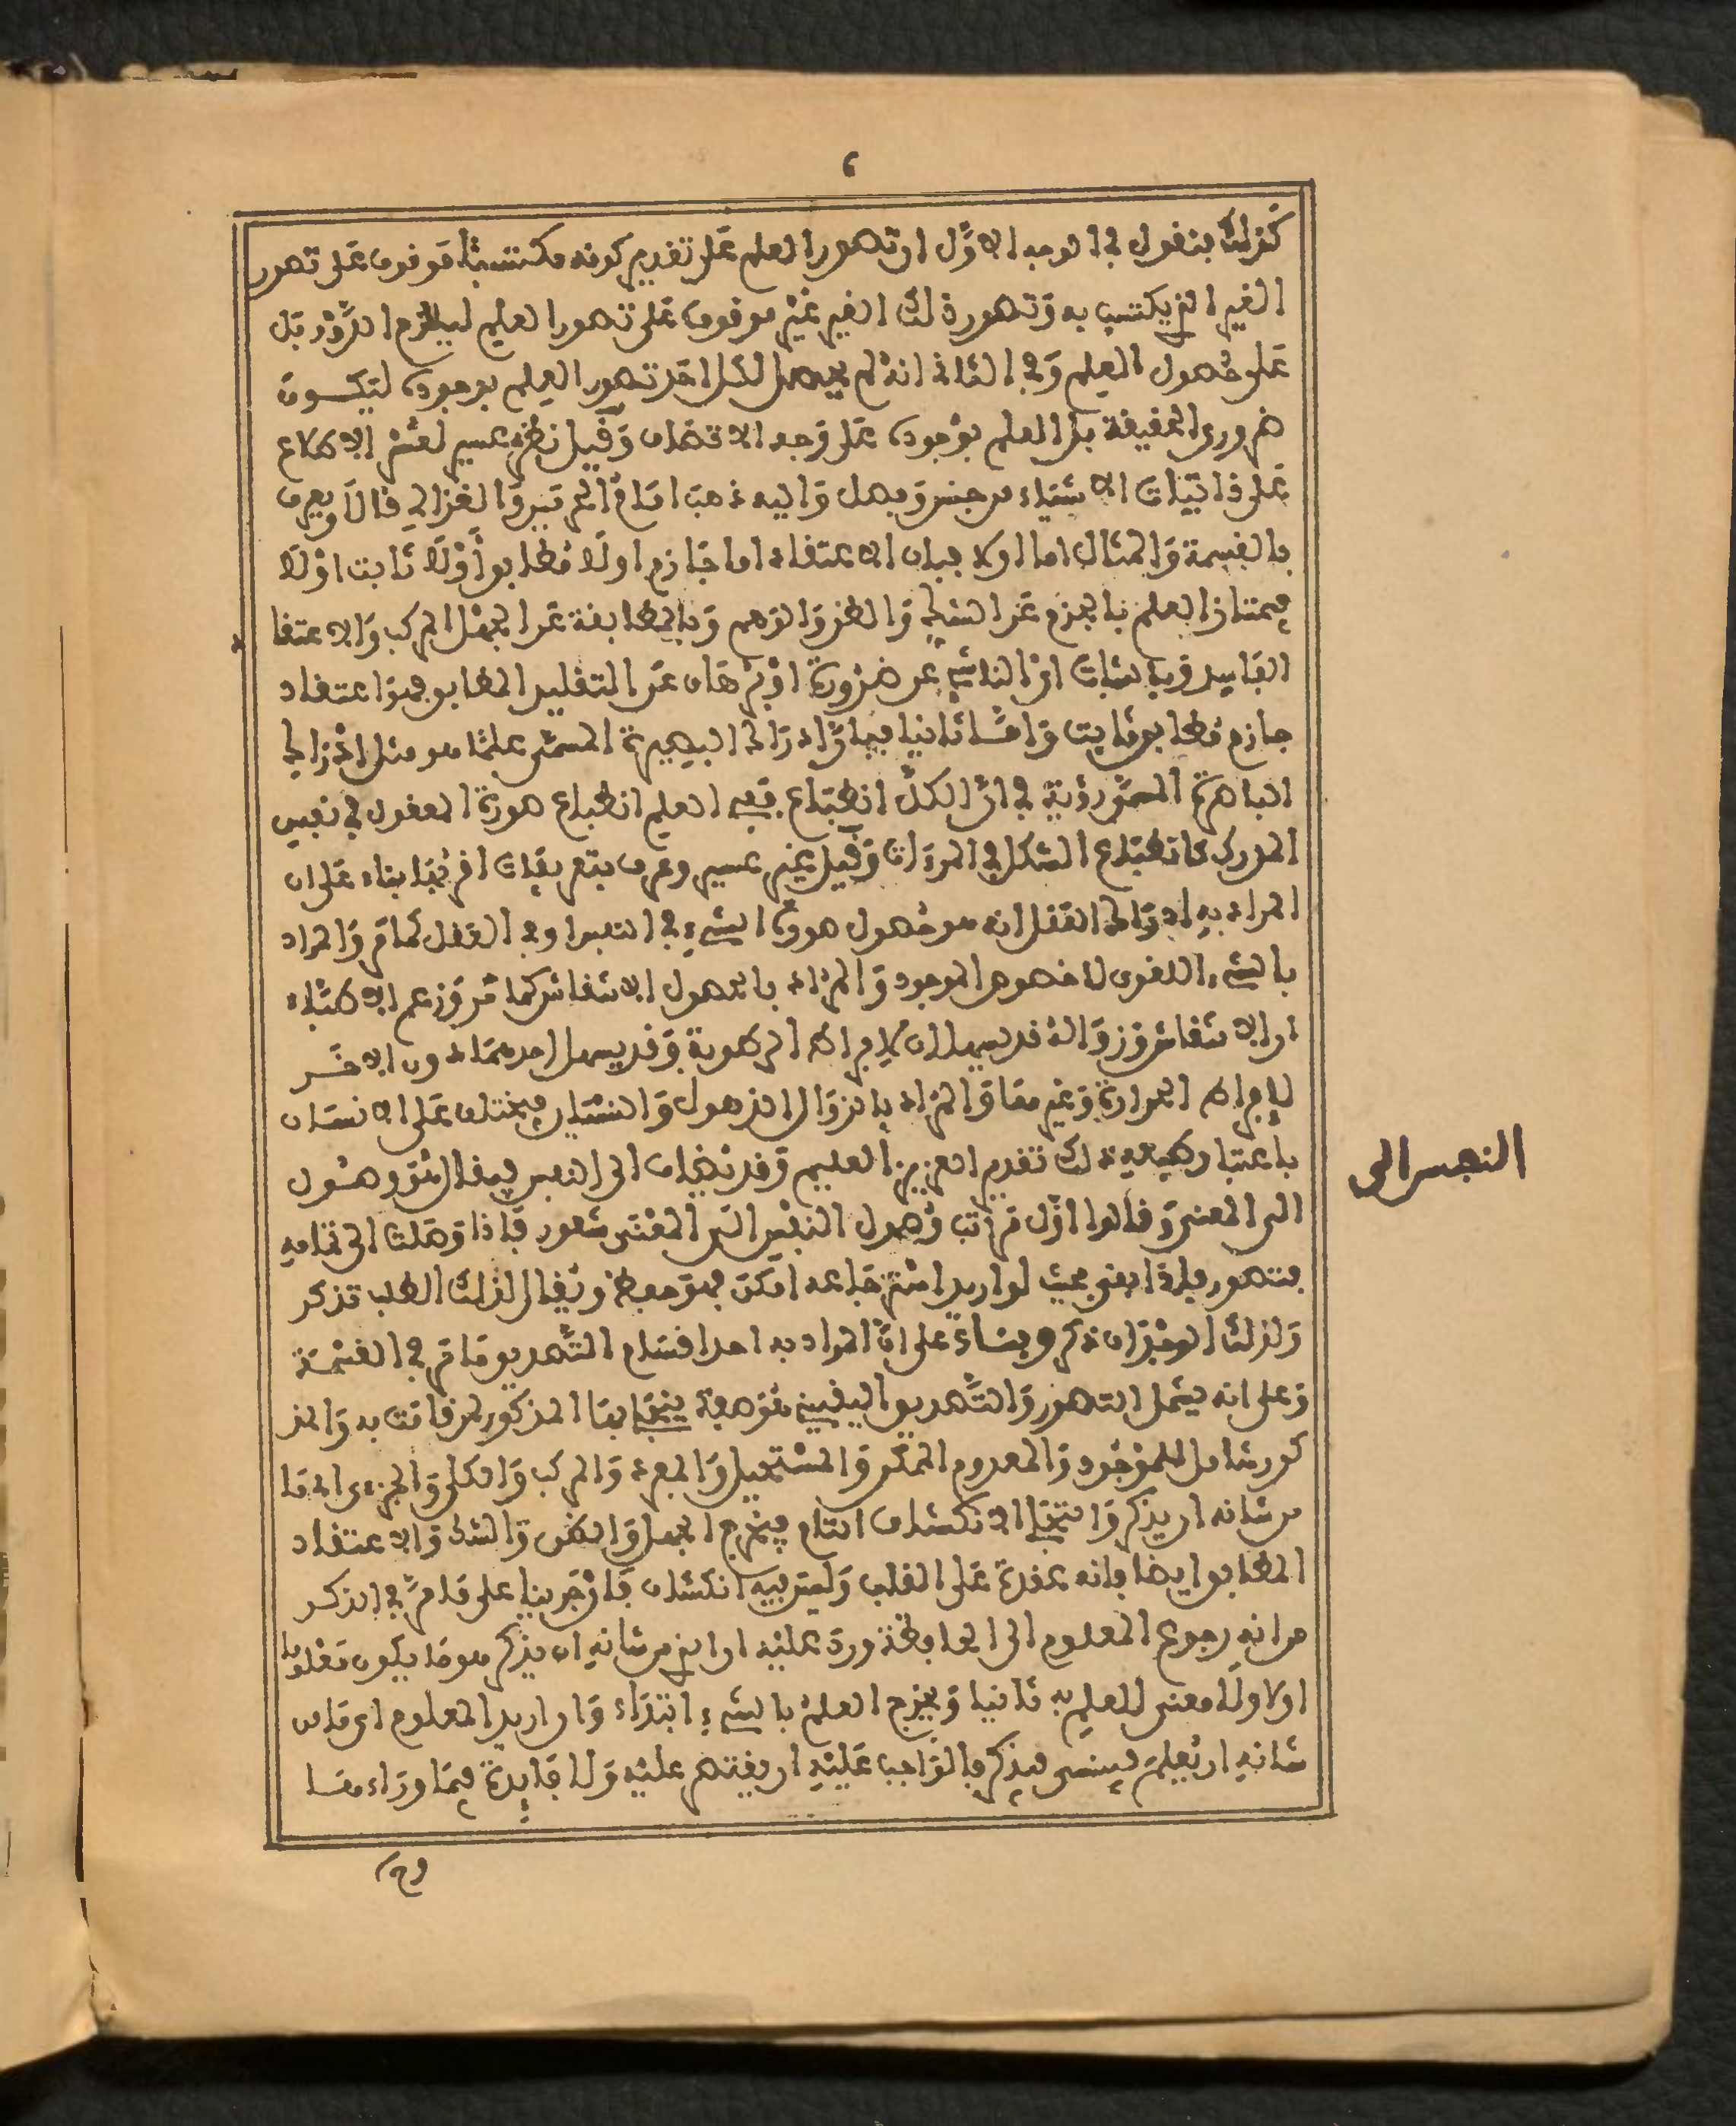 كذلك فنقول في الوجه الاول ان تصور العلم على تقدير كونه مكتسبا موقوف على تصور
الغير الذي يكتسب به وتصور ذلك الغير غير موقوف على تصور العلم ليلزم الدور بل
على حصول العلم وفي الثاني انه لم يحصل لكل احد تصور العلم بوجوده ليكون
ضروري الحقيقة بل العلم بوجوده على وجه الاتصاف وقيل نظري عسير لعسر الاطلاع
على ذاتيات الاشياء من جنس وفصل واليه ذهب امام الحرمين والغزالي قالا ويعرف
بالقسمة والمثال اما اولا فبان الاعتقاد اما جازم اولا مطابق اولا ثابت اولا
فيمتاز العلم بالجزم عن الشك والظن والوهم وبالمطابقة عن الجهل المركب والاعتقا د
الفاسد وبالثبات اي الناشئ عن ضرورة او برهان عن التقليد المطابق فهو اعتقاد
جازم مطابق ثابت وامـا ثانيا فبان ادراك البصيرة المسمى علما هو مثل ادراك
الباصرة المسمى رؤية في ان الكل انطباع ففي العلم انطباع صورة المعقول في نفس
المدرك كانطباع الشكل في المرءات وقيل غير عسير وعرف بتعريفات اقربها بناء على ان
المراد به ادراك العقل انه هو حصول صورة الشيء في النفس او في العقل كما مر والمراد
بالشيء اللغوي لا خصوص الموجود والمراد بالحصول الانتقاش كما مر وزعم الاطباء
ان الانتقاش والزوال قد يسهلان لافراط الرطوبة وقد يسهل احدهما دون الاخـر
لافراط الحرارة وغيرها والمراد بالزوال الذهول والنسيان فيختلف على الانسان
باعتبار طبيعته ذلك تقدير العزيز العليم وقد تضاف الى النفس فيقال هو وصول
النفس الى
الى المعنى وقالوا اول مراتب وصول النفس الى المعنى شعور فاذا وصلت الى تمامه
فتصور فاذا بقي بحيث لو اريد استرجاعه امكن فهو حفظ ويقال لذلك الطلب تذكر
ولذلك الوجدان ذكر وبنـاء على ان المراد به احد اقسام التصديق ما مر في القسمة
وعلى انه يشمل التصور والتصديق اليقيني هو صفة ينجلي بها المذكور لمن قامت به والمذ
كور شامل للموجود والمعدوم الممكن والمستحيل والمفرد والمركب والكلي والجزءي اي ما
من شانه ان يذكر والتجلي الانكشاف التام فيخرج الجهل والظن والشك والاعتقاد
المطابق ايضا فانه عقدة على القلب وليس فيه انكشاف فان جرينا على ما مر في الذكر
من انه رجوع المعلوم الى الحافظة ورد عليه ان الذي من شانه ان يذكر هو ما يكون معلوما
اولا ولا معنى للعلم به ثانيا ويخرج العلم بالشيء ابتداء وان اريد المعلوم اي ما من
شانه ان يعلم فينسى فيذكر فالواجب عليه ان يقتصر عليه ولا فايدة فيما وراء هـا
وح